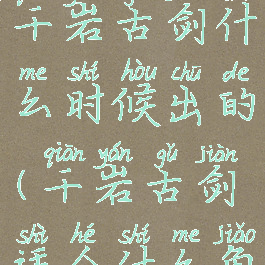 千岩古剑什
me shí hòu chū de
么时候出的
qiàn yán gǔ jiàn
(千岩古剑
shì hé shí me jiǎo
适合什么角